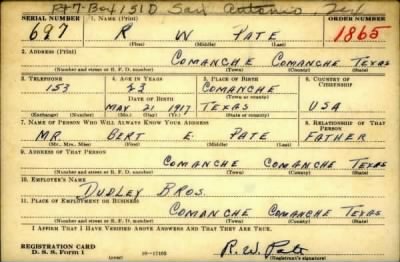 Rt 7-Box 131D San Antonio, Tex
SERIAL NUMBER 1. NAME (Print) ORDER NUMBER
697 R W PATE 1865
(First) (Middle) (Last)
2. ADDRESS (Print)
COMANCHE COMANCHE TEXAS
(Number and street or R. F. D. number) (Town) (County) (State)
3. TELEPHONE 4. AGE IN YEARS 5. PLACE OF BIRTH 6. COUNTRY OF CITIZENSHIP
153 23 COMANCHE
DATE OF BIRTH (Town or county)
MAY 21 1917 TEXAS USA
(Exchange) (Number) (Mo.) (Day) (Yr.) (State or country)
7. NAME OF PERSON WHO WILL ALWAYS KNOW YOUR ADDRESS 8. RELATIONSHIP OF THAT PERSON
MR. BERT E. PATE FATHER
(Mr., Mrs., Miss) (First) (Middle) (Last)
9. ADDRESS OF THAT PERSON
COMANCHE COMANCHE TEXAS
(Number and street or R. F. D. number) (Town) (County) (State)
10. EMPLOYER'S NAME
DUDLEY BROS.
11. PLACE OF EMPLOYMENT OR BUSINESS
COMANCHE COMANCHE TEXAS
(Number and street or R. F. D. number) (Town) (County) (State)
I AFFIRM THAT I HAVE VERIFIED ABOVE ANSWERS AND THAT THEY ARE TRUE.
REGISTRATION CARD
D. S. S. Form 1 16-17105 R. W. Pate
(Registrant's signature)